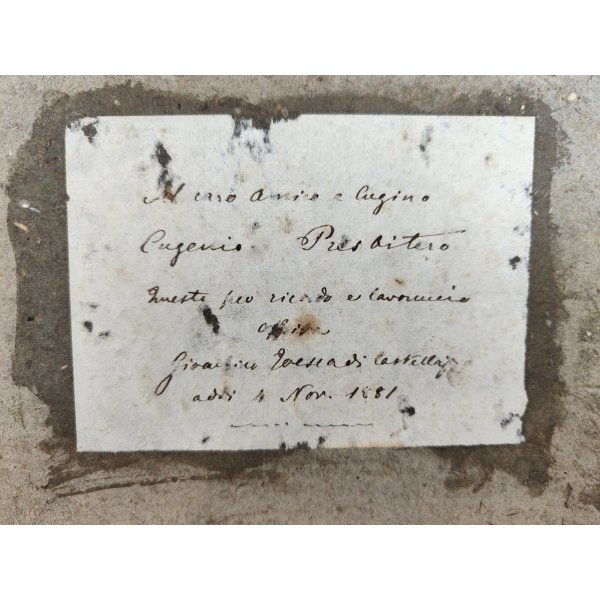 Al caro Amico e Cugino
Eugenio Presbitero
Questo per ricordo e lavoruccio
offre
Gioachino Toesca di Castella
addi 4 Nov. 1881